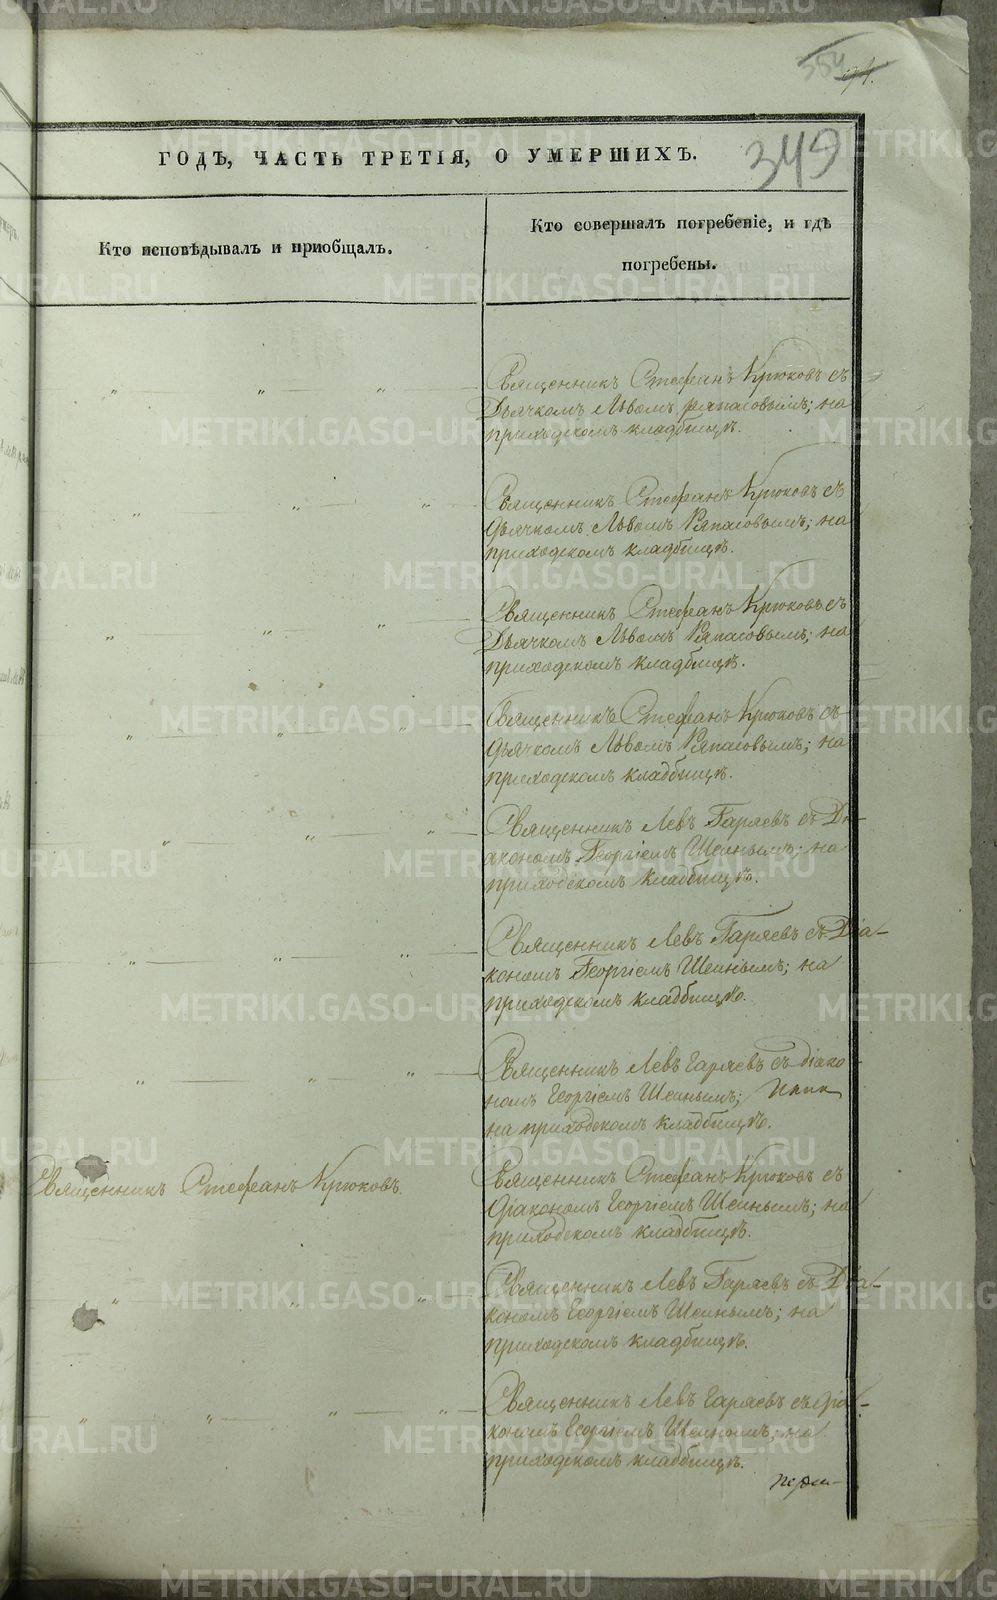 354
94.
349
ГОДЪ, ЧАСТЬ ТРЕТІЯ, О УМЕРШИХЪ.
Кто исповѣдывалъ и пріобщалъ.
Кто совершалъ погребеніе, и гдѣ
погребены.
Священникъ Стефанъ Крюковъ съ
Дьячкомъ Львомъ Ряпасовымъ; на
приходскомъ кладбищѣ.
Священникъ Стефанъ Крюковъ съ
дьячкомъ Львомъ Ряпасовымъ; на
приходскомъ кладбищѣ.
Священникъ Стефанъ Крюковъ съ
Дьячкомъ Львомъ Ряпасовымъ; на
приходскомъ кладбищѣ.
Священникъ Стефанъ Крюковъ съ
дьячкомъ Львомъ Ряпасовымъ; на
приходскомъ кладбищѣ.
Священникъ Левъ Гаряевъ съ Ді-
акономъ Георгіемъ Шеинымъ; на
приходскомъ кладбищѣ.
Священникъ Левъ Гаряевъ съ Діа-
кономъ Георгіемъ Шеинымъ; на
приходскомъ кладбищѣ.
Священникъ Левъ Гаряевъ съ діако-
номъ Георгіемъ Шеинымъ;
на приходскомъ кладбищѣ.
Священникъ Стефанъ Крюковъ.
Священникъ Стефанъ Крюковъ съ
діакономъ Георгіемъ Шеинымъ; на
приходскомъ кладбищѣ.
Священникъ Левъ Гаряевъ съ Діа-
кономъ Георгіемъ Шеинымъ; на
приходскомъ кладбищѣ.
Священникъ Левъ Гаряевъ съ діа-
кономъ Георгіемъ Шеинымъ; на
приходскомъ кладбищѣ.
METRIKI.GASO-URAL.RU